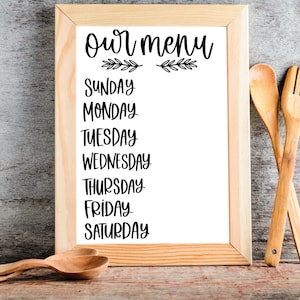 our menu
SUNDAY
MONDAY
TUESDAY
WEDNESDAY
THURSDAY
FRIDAY
SATURDAY